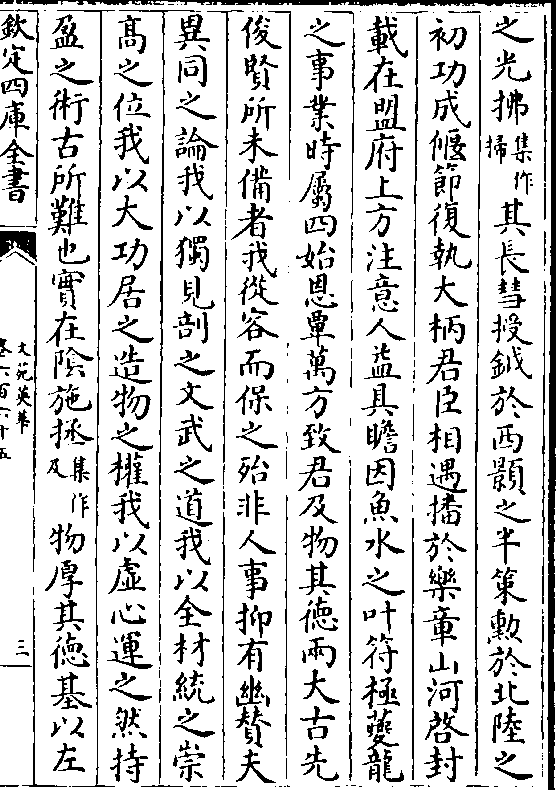 之光拂集作掃其長彗授鉞於西顥之半策勲於北陸之
初功成偃節復執大柄君臣相遇播於樂章山河啓封
載在盟府上方注意人益具瞻因魚水之叶符極夔龍
之事業時屬四始恩覃萬方致君及物其徳兩大古先
俊賢所未備者我從容而保之殆非人事抑有幽賛夫
異同之論我以獨見剖之文武之道我以全材統之崇
髙之位我以大功居之造物之權我以虚心運之然持
盈之術古所難也實在陰施拯集作及物厚其徳基以左
欽定四庫全書
文苑英華
卷六百六十五
三